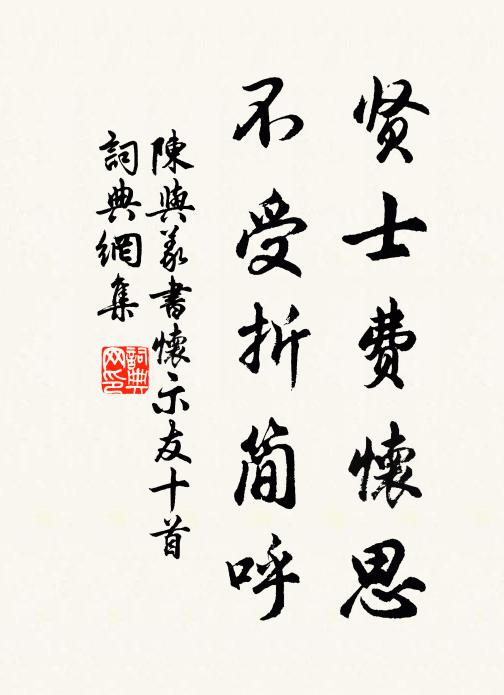 贤士费懷思
不受折简呼
陳與義書懷示友十首
詞典網集
詞典网印